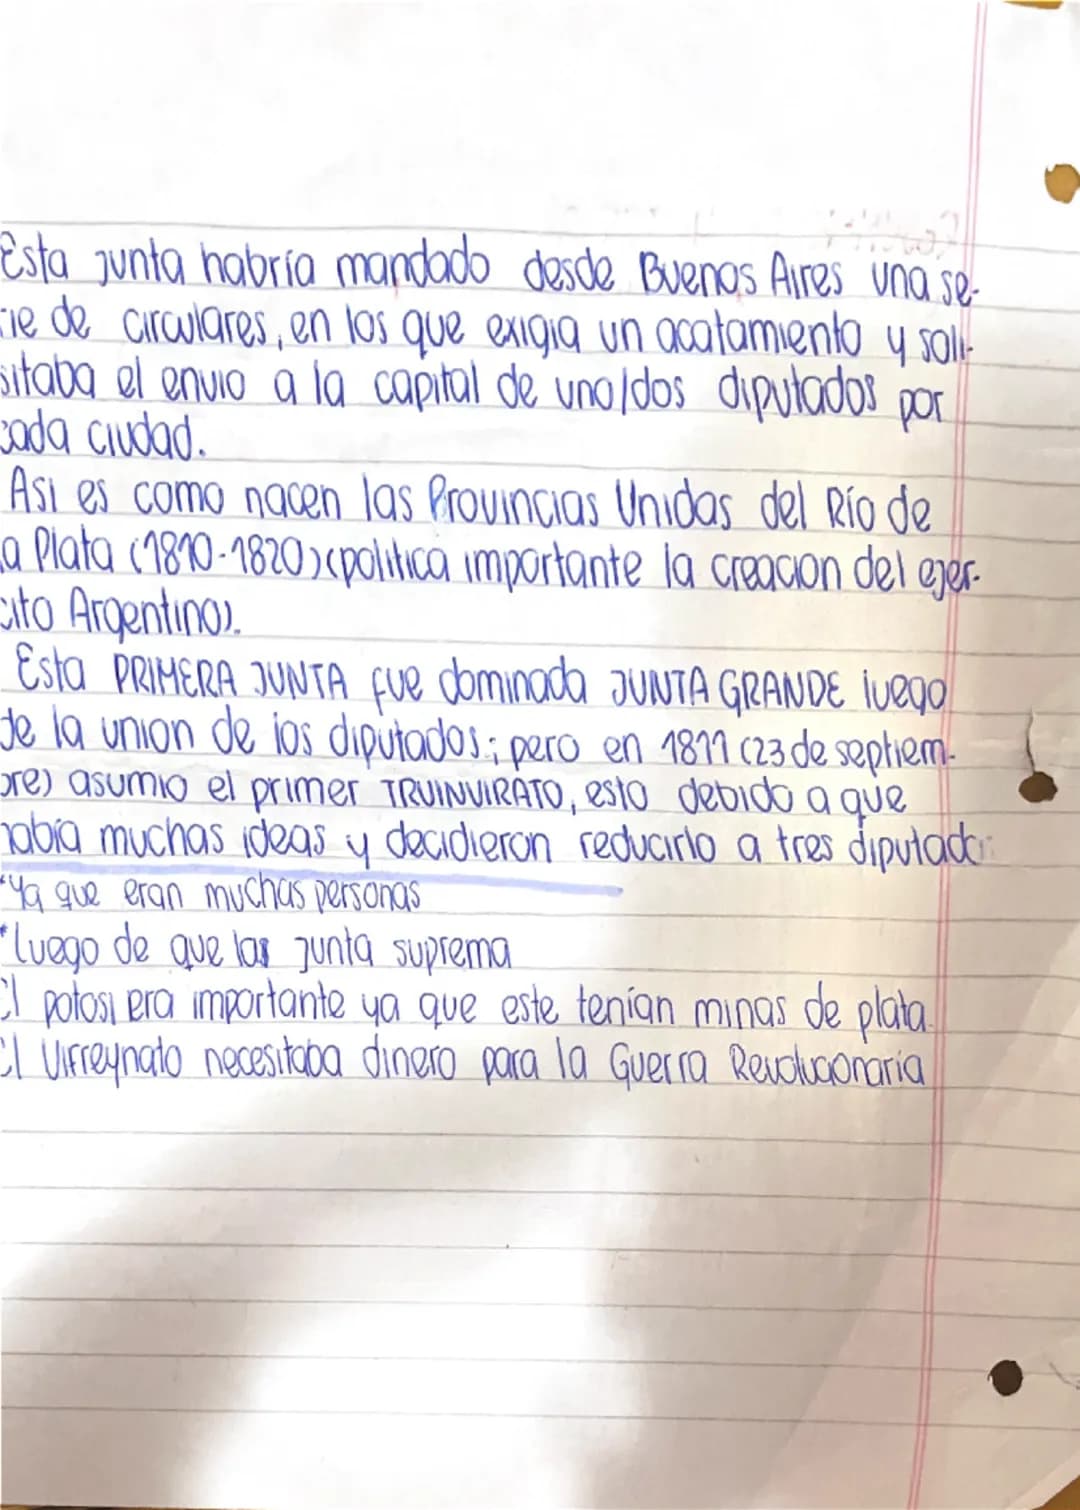 Esta junta habría mandado desde Buenos Aires una se-
rie de circulares, en los que exigia un acatamiento y soli-
sitaba el envio a la capital de uno/dos diputados por
cada ciudad.
Asi es como nacen las Provincias Unidas del Río de
la Plata (1810-1820) (politica importante la creacion del ejer-
cito Argentino).
Esta PRIMERA JUNTA fue dominada JUNTA GRANDE luego
de la union de los diputados; pero en 1811 (23 de septiem-
bre) asumio el primer TRUINVIRATO, esto debido a que
había muchas ideas y decidieron reducirlo a tres diputado
*Ya que eran muchas personas
*luego de que las junta suprema
El potosi era importante ya que este tenían minas de plata.
El Virreynato necesitaba dinero para la Guerra Revolucionaria